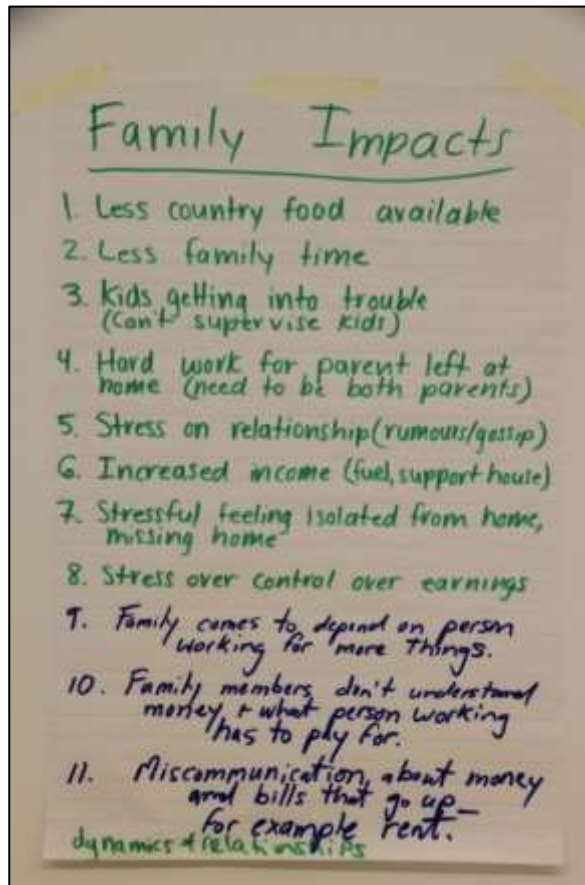 Family Impacts
1. Less country food available
2. Less family time
3. Kids getting into trouble
(Can't supervise kids)
4. Hard work for parent left at
home (need to be both parents)
5. Stress on relationship (rumours/gossip)
6. Increased income (fuel, support house)
7. Stressful feeling isolated from home,
missing home
8. Stress over control over earnings
9. Family comes to depend on person
working for more things.
10. Family members don't understand
money + what person working
has to pay for.
11. Miscommunication about money
and bills that go up _
for example rent.
dynamics + relationships